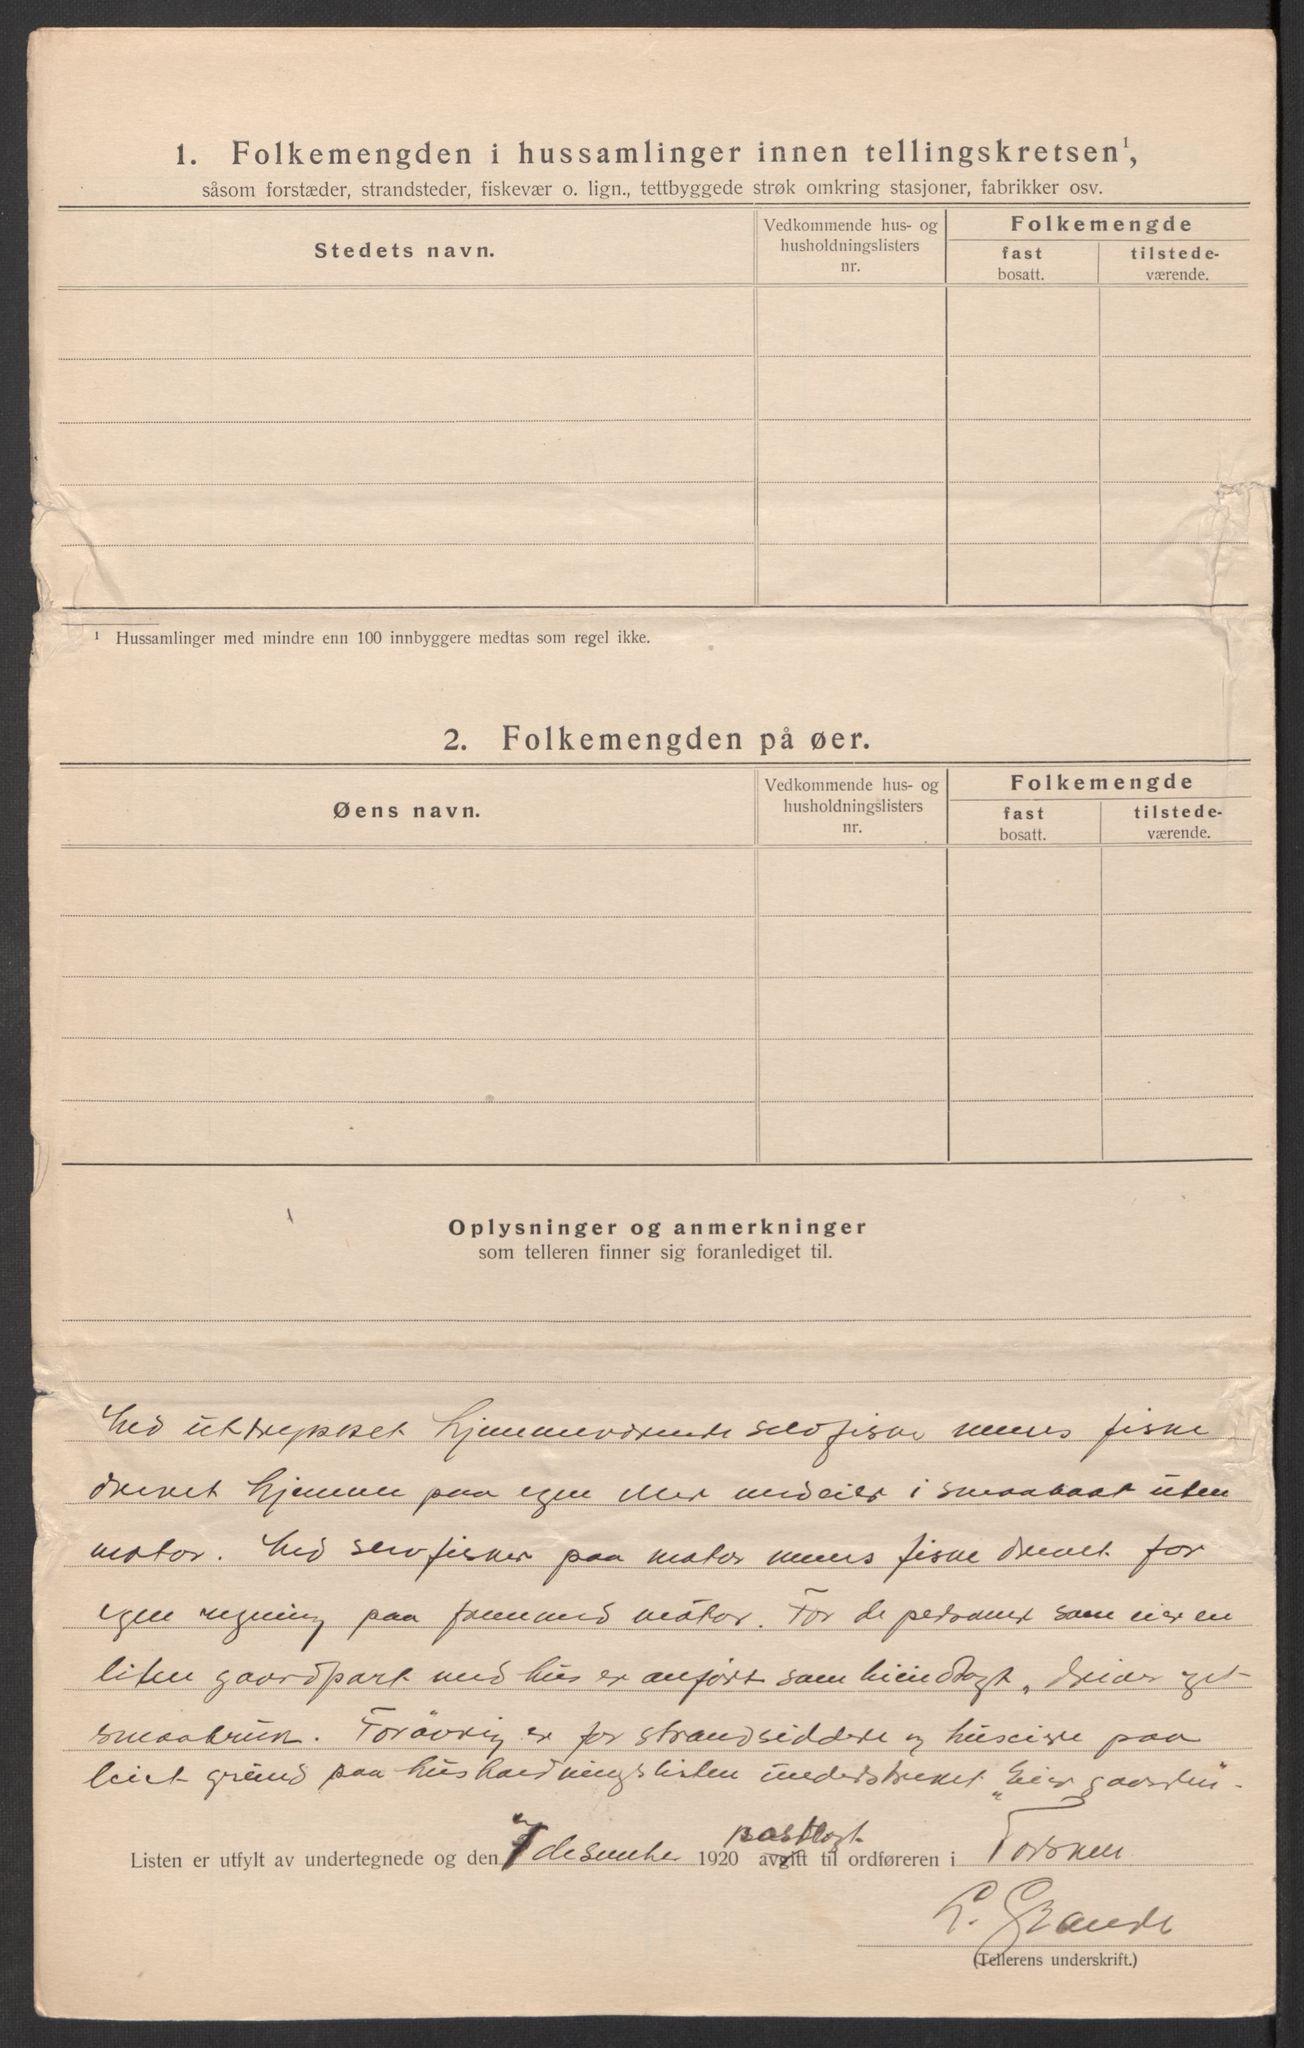 1. Folkemengden i hussamlinger innen tellingskretsen¹,
såsom forstæder, strandsteder, fiskevær o. lign., tettbyggede strøk omkring stasjoner, fabrikker osv.
Stedets navn.
Vedkommende hus- og
husholdningslisters
nr.
Folkemengde
fast
bosatt.
tilstede-
værende.
¹ Hussamlinger med mindre enn 100 innbyggere medtas som regel ikke.
2. Folkemengden på øer.
Øens navn.
Vedkommende hus- og
husholdningslisters
nr.
Folkemengde
fast
bosatt.
tilstede-
værende.
Oplysninger og anmerkninger
som telleren finner sig foranlediget til.
Med uttrykket hjemmeværende selvfisker menes fiske
drevet hjemme paa egen eller medeier i smaabaat uten
motor. Med selvfisker paa motor menes fiske drevet for
egen regning paa fremmed motor. For de personer som eier en
liten gaardpart med hus er anført som hiendlagt „driver eget
smaabruk. Forøvrig er for strandsiddere og huseiere paa
leiet grund paa husholdningslisten understreket „Eier gaarden".
Listen er utfylt av undertegnede og den 7 desember 1920 avgitt postlagt til ordføreren i Torsken
L. Grande
(Tellerens underskrift.)